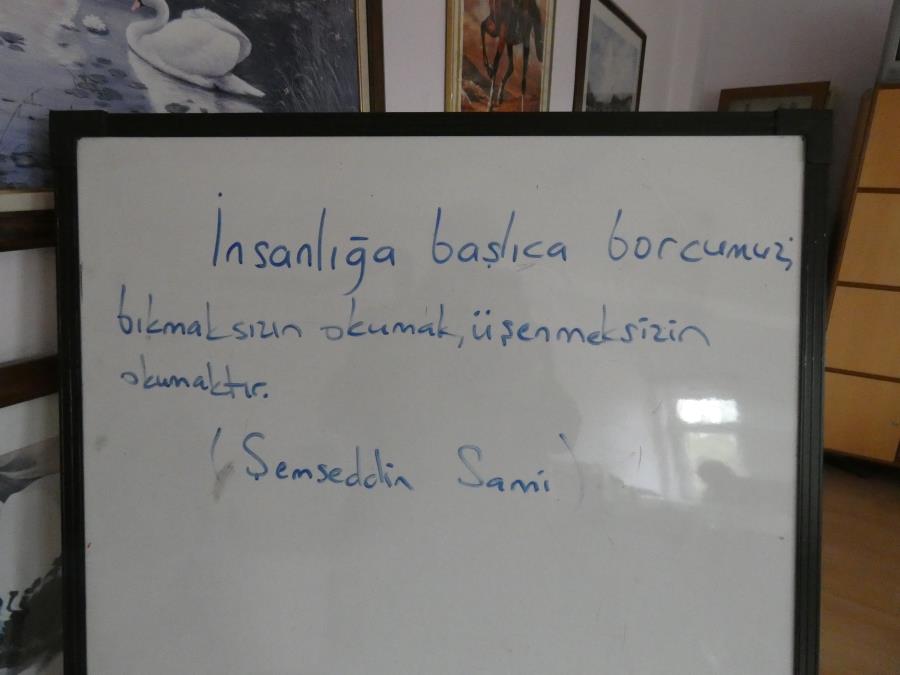 İnsanlığa başlıca borcumuz,
bıkmaksızın okumak, üşenmeksizin
okumaktır.
(Şemseddin Sami)